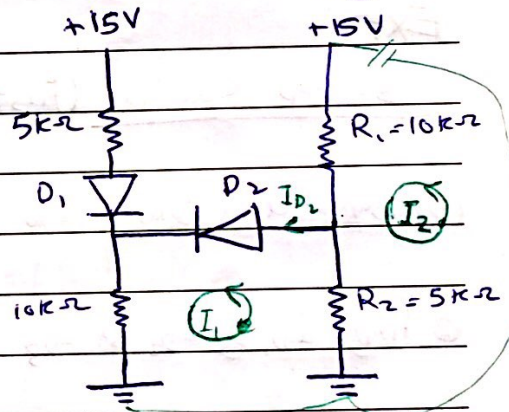 +15V +15V
5kΩ R₁=10kΩ
D₁ D₂ I_D₂ I₂
10kΩ I₁ R₂=5kΩ